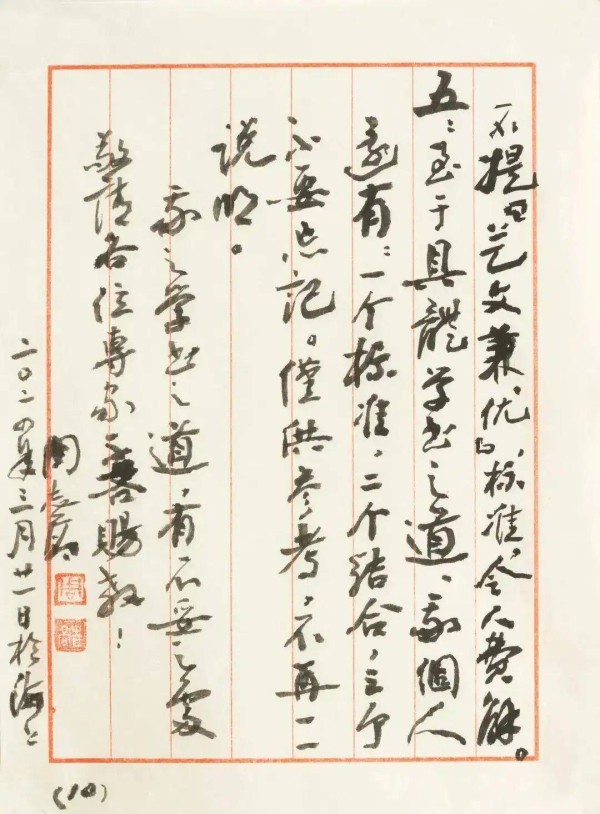 不提『艺文兼优』标准，令人费解。
五：至于具體学书之道，我個人
還有：一个标准，二个结合，三个
不要忘记。僅供参考，不再一一
说明。
我之学书之道，有不妥之處
敬请各位專家不吝赐教！
周志高
二〇一四年三月廿一日於海上
(10)